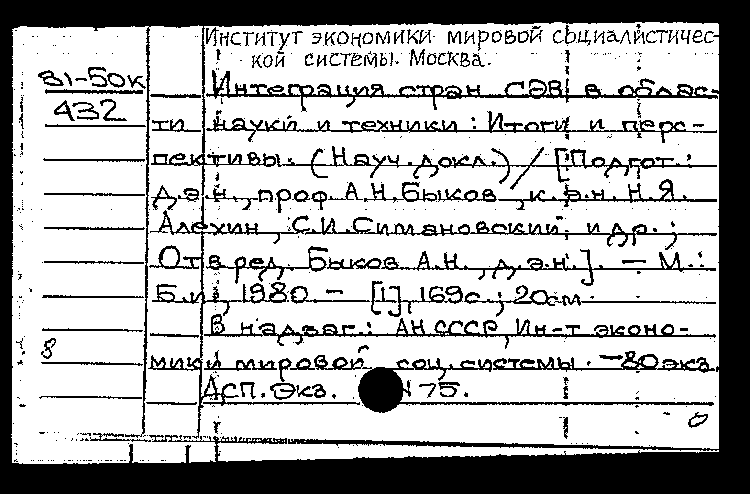 Институт экономики мировой социалистичес-
кой системы. Москва.
81-50к
432
Интеграция стран СЭВ в облас-
ти науки и техники: Итоги и перс-
пективы. (Науч. докл.) / [Подгот.:
д.э.н., проф. А.Н. Быков, к.э.н. Н.Я.
Алехин, С.И. Симановский и др.;
Отв. ред. Быков А.Н., д.э.н.]. — М.:
Б.и., 1980. — [1], 169с.; 20см.
В надзаг.: АН СССР, Ин-т эконо-
мики мировой соц. системы. — 80 экз.
8
ДСП. Экз. 75.
0